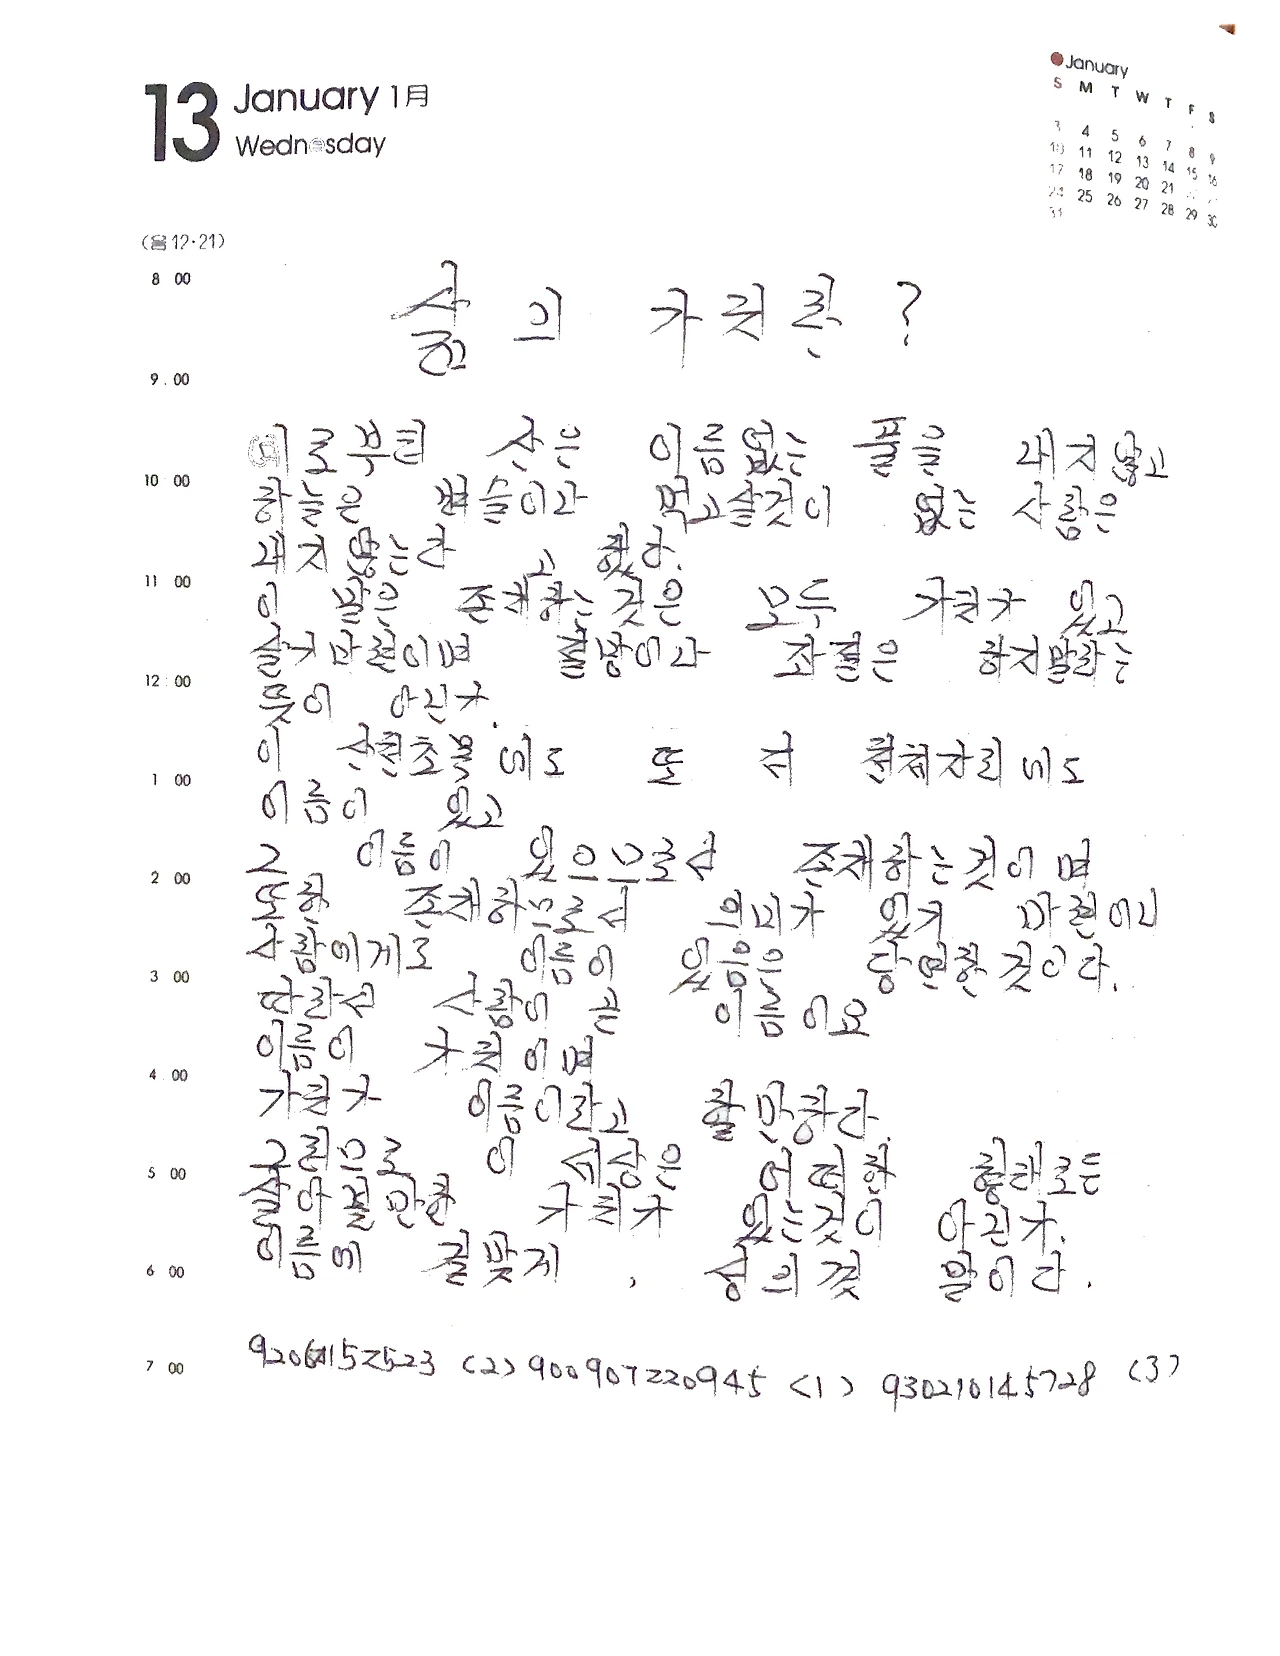 13 January 1月
Wednesday
January
S M T W T F S
3 4 5 6 7 8 9
10 11 12 13 14 15 16
17 18 19 20 21
24 25 26 27 28 29 30
31
(음 12·21)
8 00
삶의 가치란 ?
9 00
예로부터 산은 이름없는 풀을 내지않고
10 00
하늘은 먹고살것이 없는 사람은
내지 않는다고 했다.
11 00
이 말은 존재하는것은 모두 가치가 있고
살기 마련이며 절망이나 좌절은 하지말라는
12 00
뜻이 아닌가.
이 산천초목에도 또 저 천체자리에도
1 00
이름이 있고
그 이름이 있으므로서 존재하는것이며
2 00
또한 존재하므로서 의미가 있기 마련이니
사람에게도 이름이 있음은 당연한 것이다.
3 00
따라서 사람이 곧 이름이요
이름이 가치이며
4 00
가치가 이름이라고 할만하다.
그러므로 이 세상은 어떠한 형태로든
5 00
살아갈만한 가치가 있는것이 아닌가.
이름에 걸맞게, 삶의 것 말이다.
6 00
7 00
(2) 900907220945 (1) 930210145728 (3)